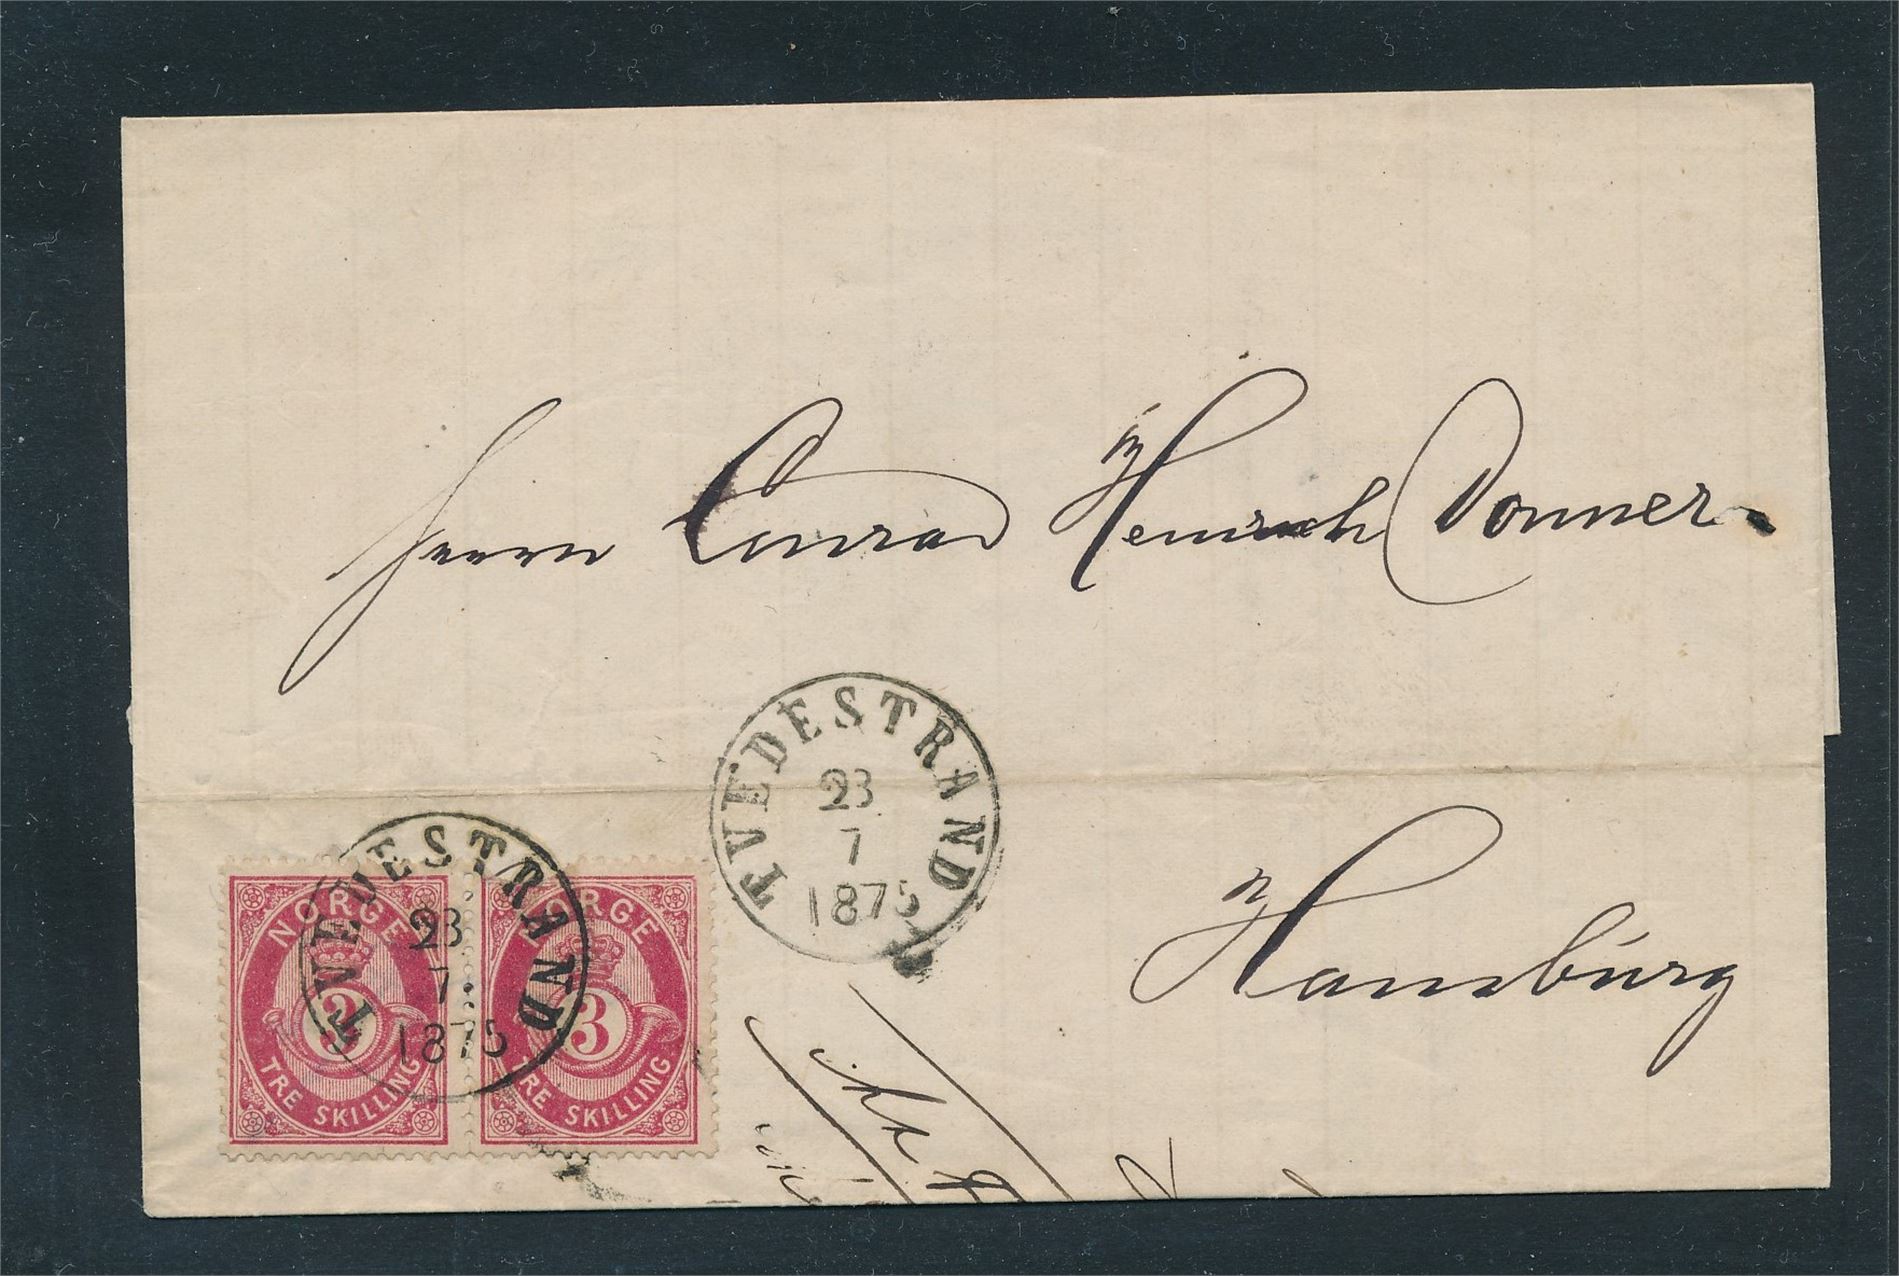 Herrn Conrad Hinrich Donner
Hamburg
TVEDESTRAND
23
7
1875
TVEDESTRAND
23
7
1875
NORGE
3
TRE SKILLING
NORGE
3
TRE SKILLING